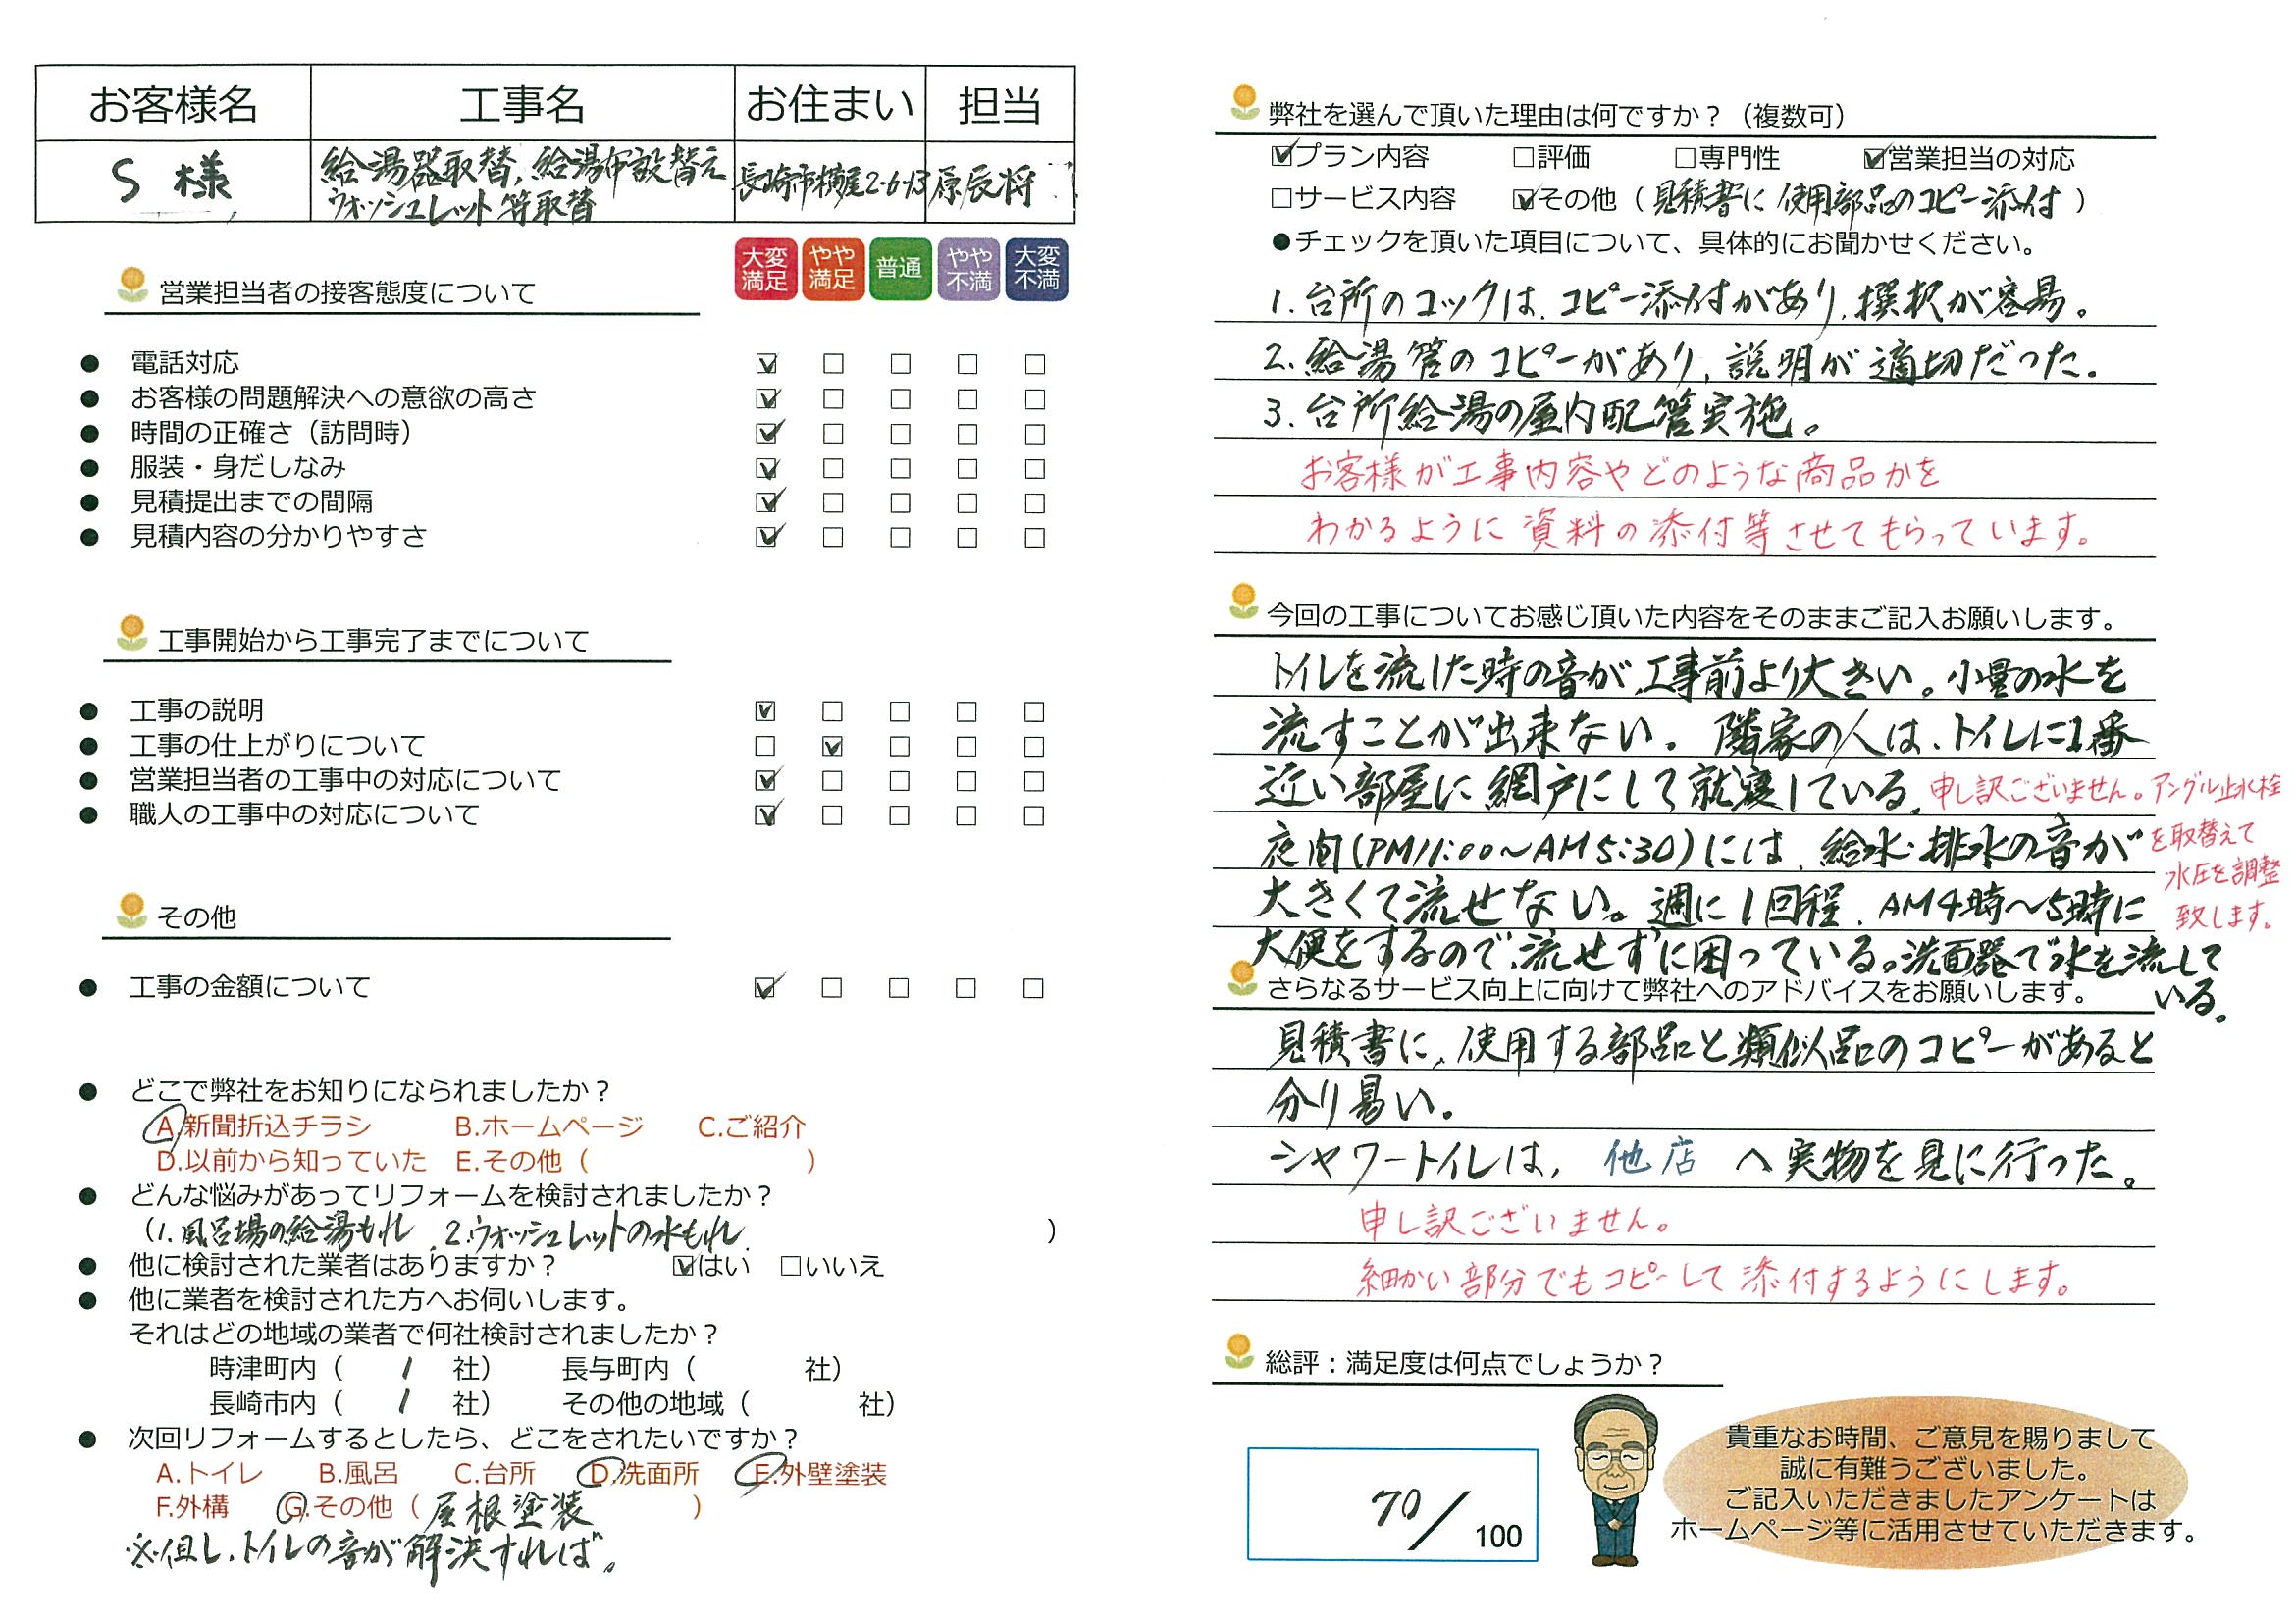 お客様名 工事名 お住まい 担当
S 様 給湯器取替、給湯布設替え ウォッシュレット等取替 長崎市横尾2-6-13 原辰将
大変満足 やや満足 普通 やや不満 大変不満
営業担当者の接客態度について
● 電話対応 ☑ □ □ □ □
● お客様の問題解決への意欲の高さ ☑ □ □ □ □
● 時間の正確さ（訪問時） ☑ □ □ □ □
● 服装・身だしなみ ☑ □ □ □ □
● 見積提出までの間隔 ☑ □ □ □ □
● 見積内容の分かりやすさ ☑ □ □ □ □
工事開始から工事完了までについて
● 工事の説明 ☑ □ □ □ □
● 工事の仕上がりについて □ ☑ □ □ □
● 営業担当者の工事中の対応について ☑ □ □ □ □
● 職人の工事中の対応について ☑ □ □ □ □
その他
● 工事の金額について ☑ □ □ □ □
● どこで弊社をお知りになられましたか？
A.新聞折込チラシ B.ホームページ C.ご紹介
D.以前から知っていた E.その他（ ）
● どんな悩みがあってリフォームを検討されましたか？
（1.風呂場の給湯もれ 2.ウォッシュレットの水もれ ）
● 他に検討された業者はありますか？ ☑はい □いいえ
● 他に業者を検討された方へお伺いします。
それはどの地域の業者で何社検討されましたか？
時津町内（ 1 社） 長与町内（ 社）
長崎市内（ 1 社） その他の地域（ 社）
● 次回リフォームするとしたら、どこをされたいですか？
A.トイレ B.風呂 C.台所 D.洗面所 E.外壁塗装
F.外構 G.その他（ 屋根塗装 ）
※但し、トイレの音が解決すれば。
弊社を選んで頂いた理由は何ですか？（複数可）
☑プラン内容 □評価 □専門性 ☑営業担当の対応
□サービス内容 ☑その他（見積書に使用部品のコピー添付）
●チェックを頂いた項目について、具体的にお聞かせください。
1. 台所のコックは、コピー添付があり、撰択が容易。
2. 給湯管のコピーがあり、説明が適切だった。
3. 台所給湯の屋内配管実施。
お客様が工事内容やどのような商品かを
わかるように資料の添付等させてもらっています。
今回の工事についてお感じ頂いた内容をそのままご記入お願いします。
トイレを流した時の音が、工事前より大きい。小量の水を
流すことが出来ない。隣家の人は、トイレに1番
近い部屋に網戸にして就寝している。
夜間(PM11:00～AM5:30)には、給水・排水の音が
大きくて流せない。週に1回程、AM4時～5時に
大便をするので、流せずに困っている。洗面器で水を流して
いる。
申し訳ございません。アングル止水栓
を取替えて
水圧を調整
致します。
さらなるサービス向上に向けて弊社へのアドバイスをお願いします。
見積書に、使用する部品と類似品のコピーがあると
分り易い。
シャワートイレは、他店へ実物を見に行った。
申し訳ございません。
細かい部分でもコピーして添付するようにします。
総評：満足度は何点でしょうか？
70／100
貴重なお時間、ご意見を賜りまして
誠に有難うございました。
ご記入いただきましたアンケートは
ホームページ等に活用させていただきます。